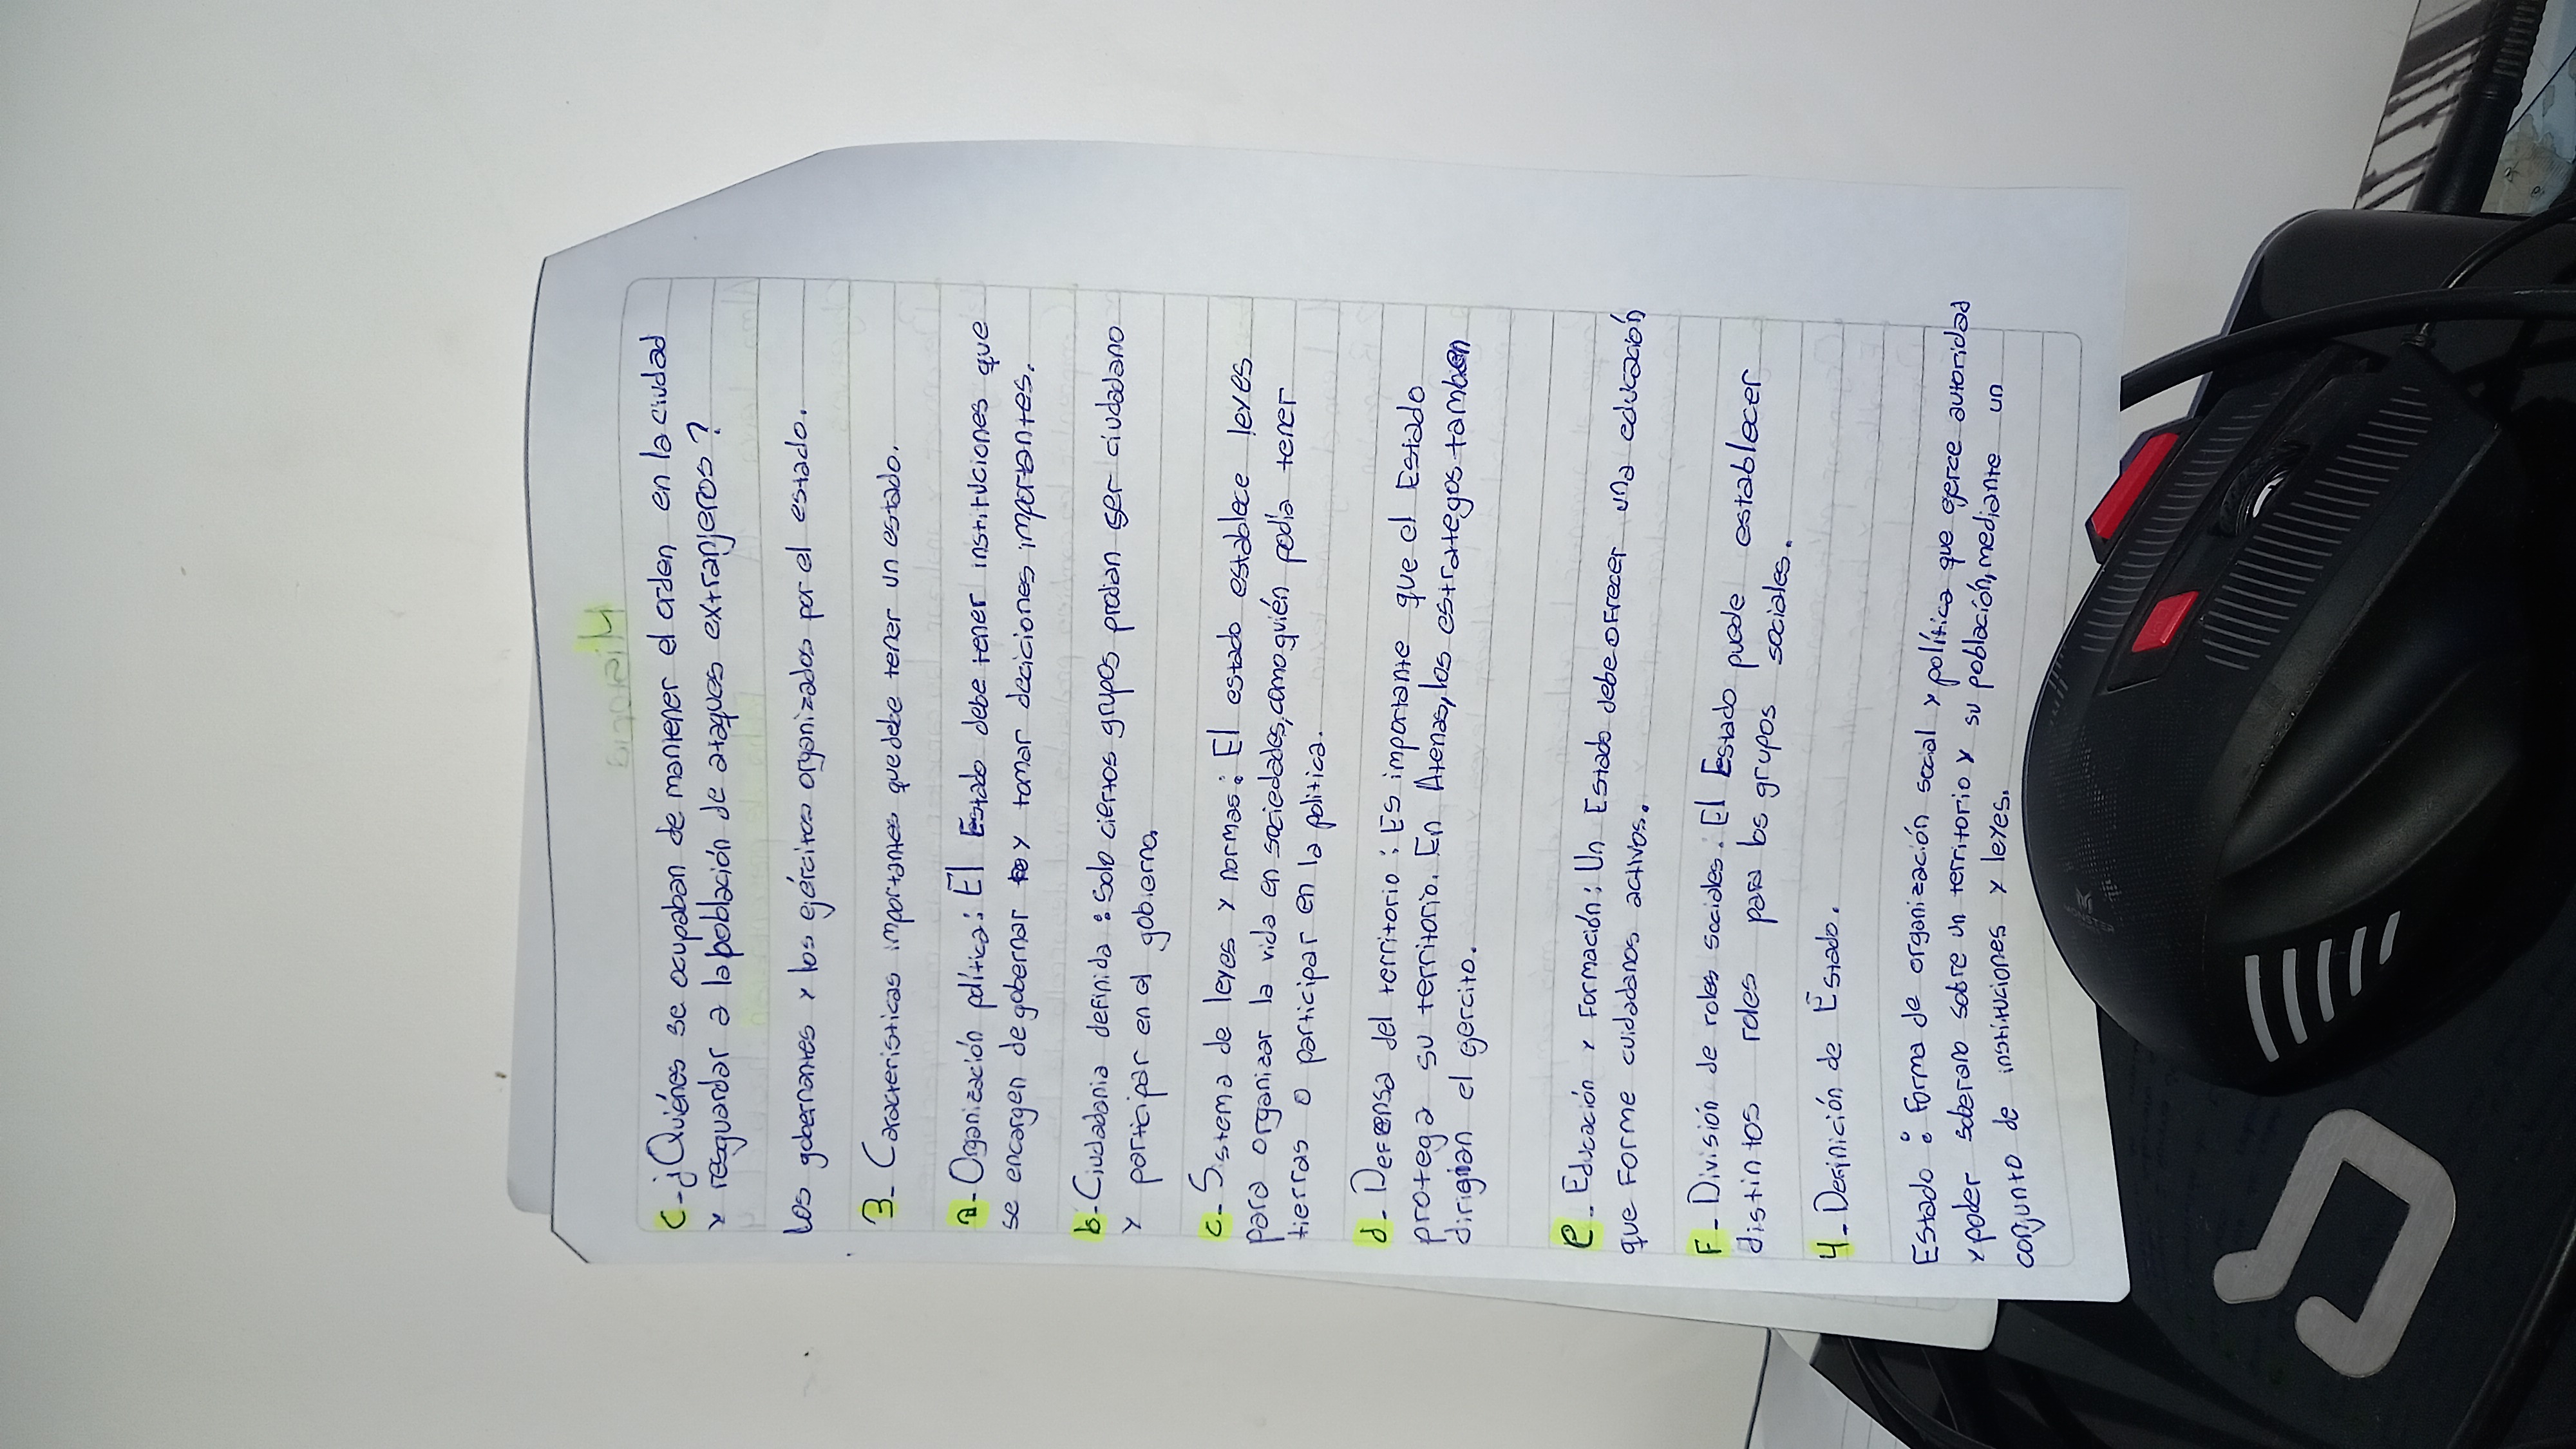 c-¿Quiénes se ocupaban de mantener el orden en la ciudad
y resguardar a la población de ataques extranjeros?
Los gobernantes y los ejércitos organizados por el estado.
3- Caracteristicas importantes que debe tener un estado.
a-Organización política: El Estado debe tener instituciones que
se encargen de gobernar y tomar deciciones importantes.
b-Ciudadania definida: Solo ciertos grupos prodian ser ciudadano
y participar en el gobierno.
c-Sistema de leyes y normas: El estado establece leyes
para organizar la vida en sociedades, como quién podia tener
tierras o participar en la politica.
d-Defensa del territorio: Es importante que el Estado
protega su territorio. En Atenas, los estrategos tambien
dirigian el ejercito.
e-Educación y Formación: Un Estado debe ofrecer una educación
que forme cuidadanos activos.
F-División de roles sociales: El Estado puede establecer
distintos roles para los grupos sociales.
4-Definición de Estado.
Estado: Forma de organización social y política que ejerce autoridad
y poder soberano sobre un territorio y su población, mediante un
conjunto de instituciones y leyes.